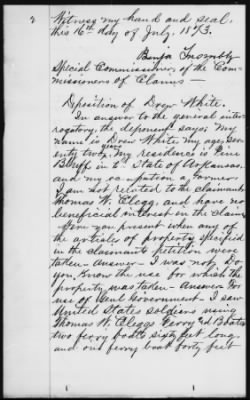 2
Witness my hand and seal,
this 16th day of July, 1873.
Special Commissioner, of the Com-
missioners of Claims
Deposition of Drew White.
In answer to the general inter
rogatory, the deponent says: My
name is Drew White, my age sev
enty two years, my residence is Pine
Bluff in the State of Arkansas,
and my occupation a Farmer
I am not related to the claimant
Thomas W. Clegg, and have no
beneficial interest in the claim
Were you present when any of
the articles of property specified
in the claimants petition were
taken - Answer - I was not. Do
you know the use for which the
property was taken - Answer For
use of Government - I saw
United States soldiers using
Thomas W. Cleggs Ferry Boats
two ferry boats sixty feet long
and one ferry boat forty feet